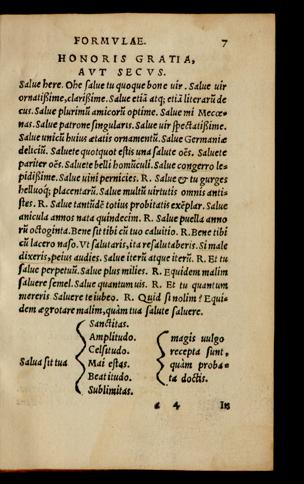 FORMVLAE. 7
HONORIS GRATIA,
AVT SECVS.
Salue here. Ohe salue tu quoque bone uir. Salue uir
ornatißime, clarißime. Salue etiã atq; etiã literarũ de
cus. Salue plurimũ amicorũ optime. Salue mi Mecœ=
nas. Salue patrone singularis. Salue uir spectatißime.
Salue unicũ huius ætatis ornamentũ. Salue Germaniæ
deliciũ. Saluete quotquot estis una salute oẽs. Saluete
pariter oẽs. Saluete belli homũculi. Salue congerro le=
pidißime. Salue uini pernicies. R. Salue & tu gurges
helluoq; placentarũ. Salue multũ uirtutis omnis anti=
stes. R. Salue tantũdẽ totius probitatis exẽplar. Salue
anicula annos nata quindecim. R. Salue puella anno
rũ octoginta. Bene sit tibi cũ tuo caluitio. R. Bene tibi
cũ lacero naso. Vt salutaris, ita resalutaberis. Si male
dixeris, peius audies. Salue iterũ atque iterũ. R. Et tu
salue perpetuũ. Salue plus milies. R. Equidem malim
saluere semel. Salue quantum uis. R. Et tu quantum
mereris. Saluere te iubeo. R. Quid si nolim? Equi=
dem ægrotare malim, quàm tua salute saluere.
Sanctitas.
Amplitudo. magis uulgo
Celsitudo. recepta sunt,
Salua sit tua Maiestas. quàm proba=
Beatitudo. ta doctis.
Sublimitas.
a 4 In